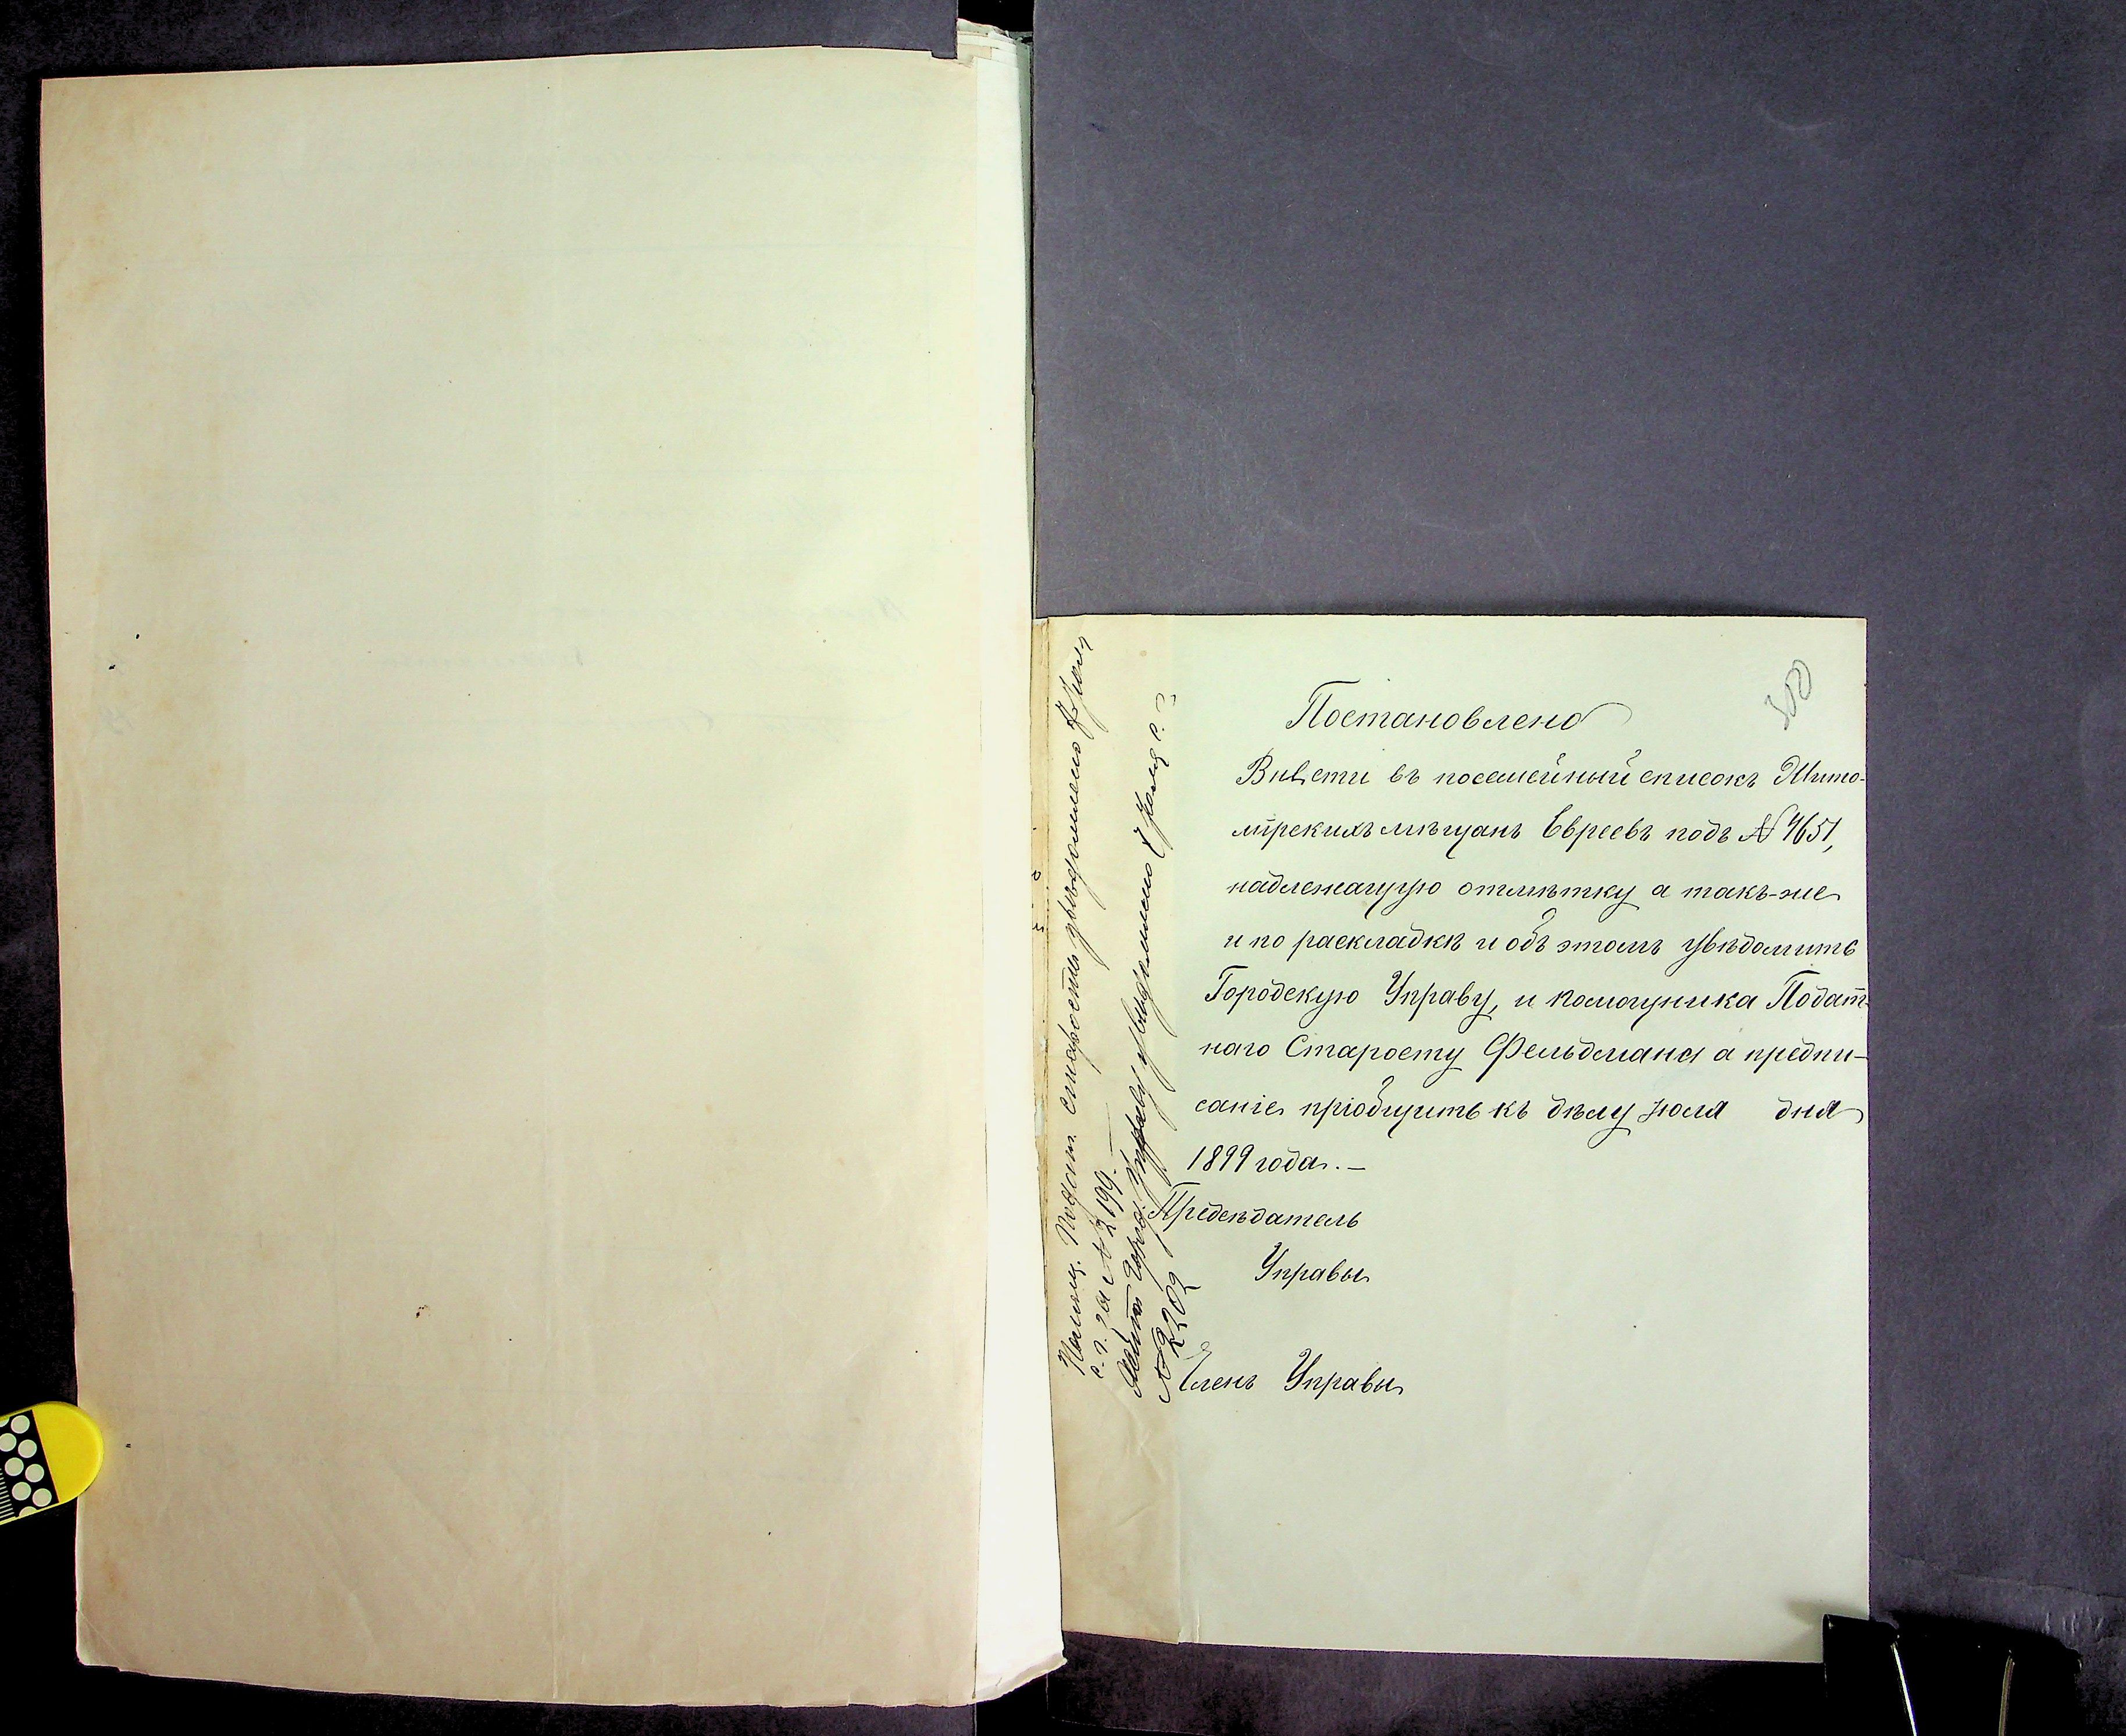 300
Постановлено
Внѣсти въ посемейный списокъ Жито-
мірскихъ мѣщанъ Евреевъ подъ № 4651,
надлежащую отмѣтку а такъ-же
и по раскладкѣ и объ этомъ увѣдомить
Городскую Управу, и помощника Подат-
наго Старосту Фельдмана а предпи-
саніе пріобщить къ дѣлу Іюля дня
1899 года.—
Предсѣдатель
Управы
Членъ Управы
Помощ. Подат. старосты увѣдомлено Іюля
с. г. за № 2199.—
Жит. Город. Управу увѣдомлено Іюля с. г.
№ 2202